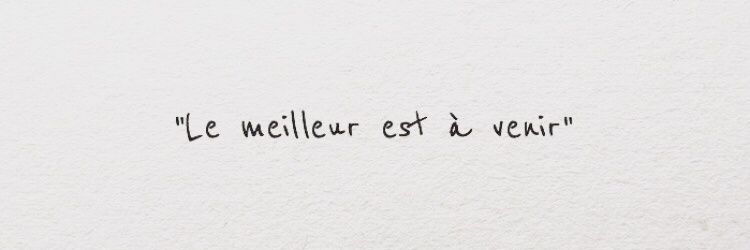 "Le meilleur est à venir"